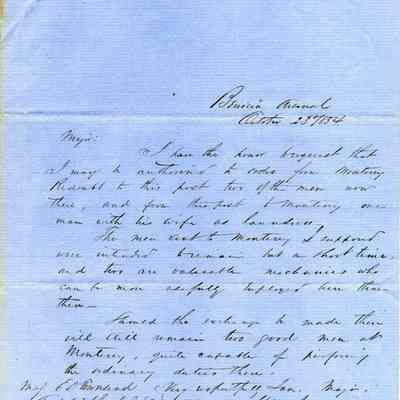 Benicia Arsenal
October 23d/54
Major:
I have the honor to request that
I may be authorized to order from Monterey
Redoubt to this post two of the men now
there, and from this post to Monterey one
man with his wife as laundress.
The men sent to Monterey I supposed
were intended to remain but a short time,
and two are valuable mechanics who
can be more usefully employed here than
there—
Should the exchange be made there
will still remain two good men at
Monterey, quite capable of performing
the ordinary duties there.
Maj. E. D. Townsend Very respectfully I am, Major,